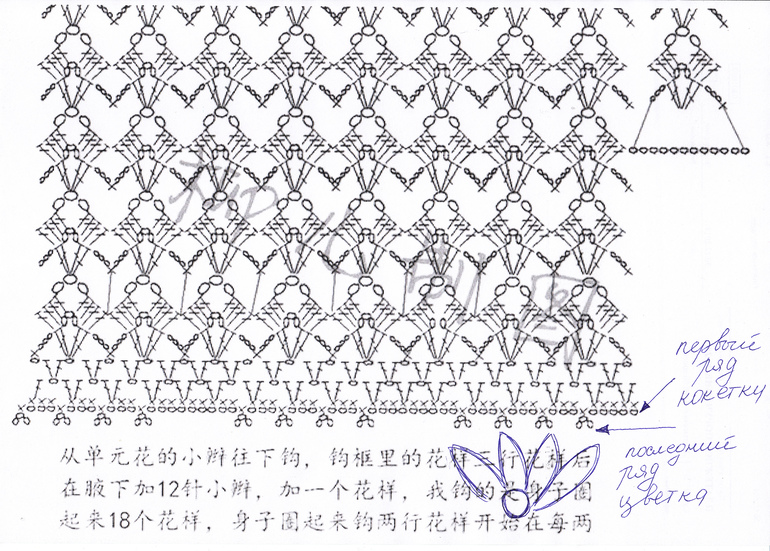 первый
ряд
кокетки
последний
ряд
цветка
从单元花的小辫往下钩，钩框里的花样三行花样后
在腋下加12针小辫，加一个花样，我钩的身子圈
起来18个花样，身子圈起来钩两行花样开始在每两